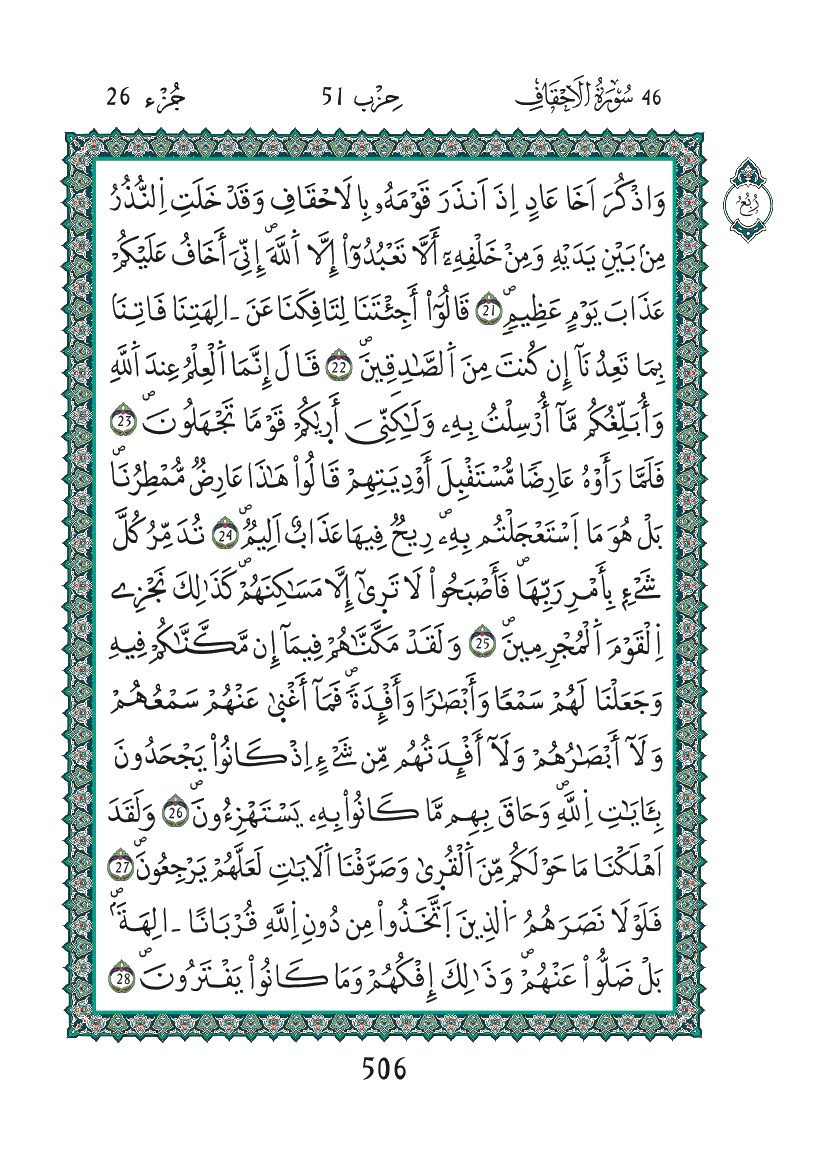 46 سُورَةُ الَاحْقَافِ
حِزْب 51
جُزْء 26
رُبُع
وَاذْكُرَ اَخَا عَادٍ اِذَ اَنذَرَ قَوْمَهُۥ بِالَاحْقَافِ وَقَدْ خَلَتِ اِ۬لنُّذُرُ
مِنۢ بَيْنِ يَدَيْهِ وَمِنْ خَلْفِهِۦٓ أَلَّا تَعْبُدُوٓاْ إِلَّا اَ۬للَّهَۖ إِنِّيَ أَخَافُ عَلَيْكُمْ
عَذَابَ يَوْمٍ عَظِيمٖۖ 21 قَالُوٓاْ أَجِئْتَنَا لِتَافِكَنَا عَنَ ـ اٰلِهَتِنَا فَاتِنَا
بِمَا تَعِدُنَآ إِن كُنتَ مِنَ اَ۬لصَّٰدِقِينَۖ 22 قَالَ إِنَّمَا اَ۬لْعِلْمُ عِندَ اَ۬للَّهِ
وَأُبَلِّغُكُم مَّآ أُرْسِلْتُ بِهِۦ وَلَٰكِنِّيَ أَر۪يٰكُمْ قَوْماٗ تَجْهَلُونَۖ 23
فَلَمَّا رَأَوْهُ عَارِضاٗ مُّسْتَقْبِلَ أَوْدِيَتِهِمْ قَالُواْ هَٰذَا عَارِضٞ مُّمْطِرُنَاۖ
بَلْ هُوَ مَا اَ۪سْتَعْجَلْتُم بِهِۦۖ رِيحٞ فِيهَا عَذَابٌ اَلِيمٞۖ 24 تُدَمِّرُ كُلَّ
شَےْءِۢ بِأَمْرِ رَبِّهَاۖ فَأَصْبَحُواْ لَا تَر۪ىٰٓ إِلَّا مَسَٰكِنَهُمْۖ كَذَٰلِكَ نَجْزِے
اِ۬لْقَوْمَ اَ۬لْمُجْرِمِينَۖ 25 وَلَقَدْ مَكَّنَّٰهُمْ فِيمَآ إِن مَّكَّنَّٰكُمْ فِيهِ
وَجَعَلْنَا لَهُمْ سَمْعاٗ وَأَبْصَٰراٗ وَأَفْـِٕدَةٗۖ فَمَآ أَغْن۪يٰ عَنْهُمْ سَمْعُهُمْ
وَلَآ أَبْصَٰرُهُمْ وَلَآ أَفْـِٕدَتُهُم مِّن شَےْءٍ اِذْ كَانُواْ يَجْحَدُونَ
بِـَٔايَٰتِ اِ۬للَّهِۖ وَحَاقَ بِهِم مَّا كَانُواْ بِهِۦ يَسْتَهْزِءُونَۖ 26 وَلَقَدَ
اَهْلَكْنَا مَا حَوْلَكُم مِّنَ اَ۬لْقُر۪ىٰ وَصَرَّفْنَا اَ۬لَايَٰتِ لَعَلَّهُمْ يَرْجِعُونَۖ 27
فَلَوْلَا نَصَرَهُمُ اُ۬لذِينَ اَ۪تَّخَذُواْ مِن دُونِ اِ۬للَّهِ قُرْبَاناً ـ اٰلِهَةَۢۖ
بَلْ ضَلُّواْ عَنْهُمْۖ وَذَٰلِكَ إِفْكُهُمْ وَمَا كَانُواْ يَفْتَرُونَۖ 28
506